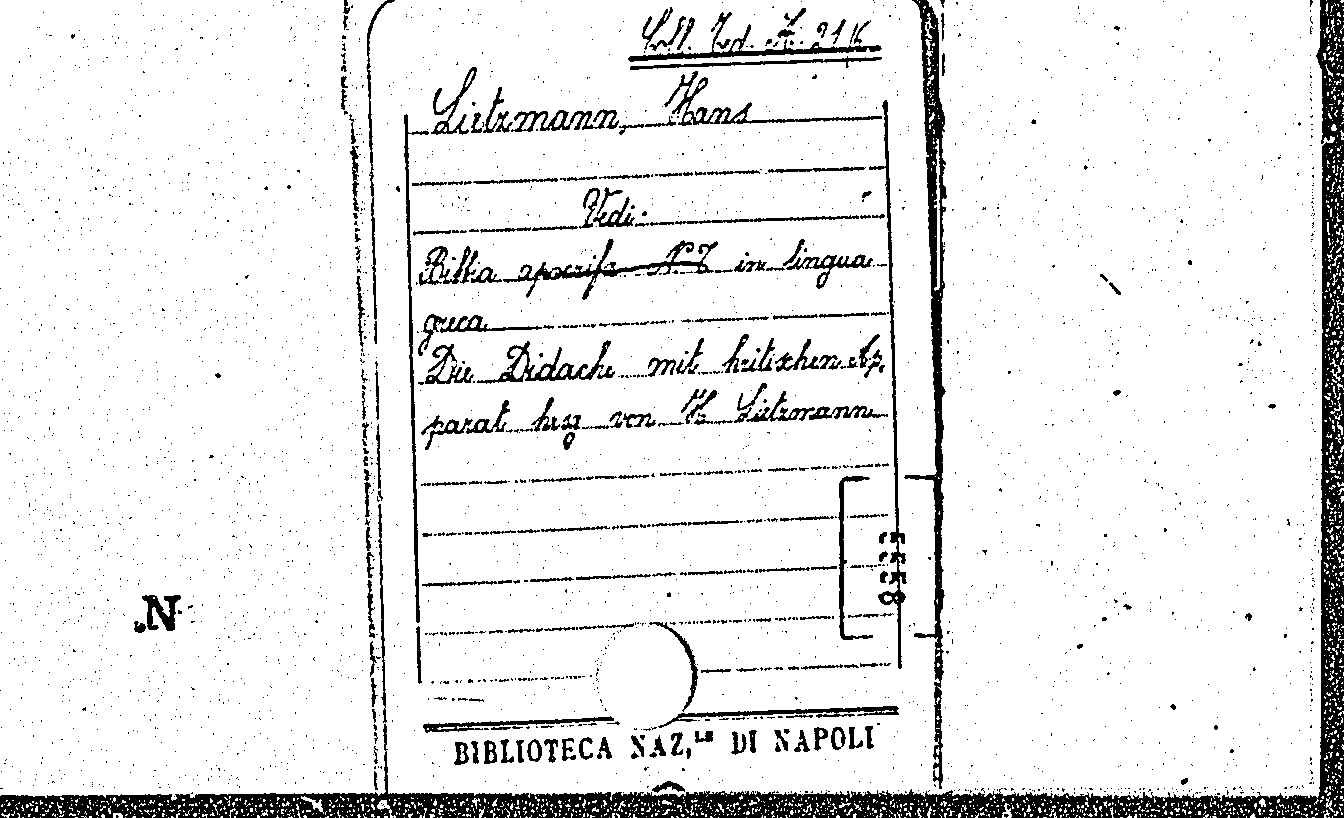 Coll. Ted. A. 21 K
Lietzmann, Hans
Vedi:
Bibbia apocrifa N. T. in lingua
greca
Die Didache mit kritischen Ap
parat hrsg von H. Lietzmann
BIBLIOTECA NAZ,LE DI NAPOLI
N.